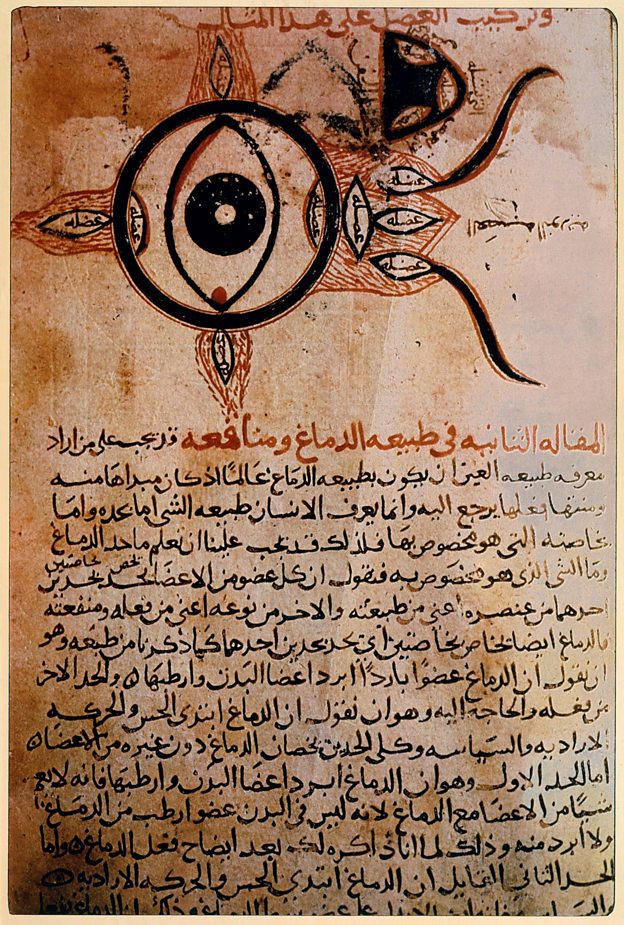 وتركيب العضل على هذا المثال
عضله
عضله
عضله
عضله
عضله
عضله
عضله
عضله
العصبه النوريه
المقاله الثانيه في طبيعه الدماغ ومنافعه قد يجب على من اراد
معرفه طبيعه العين ان يكون بطبيعه الدماغ عالمًا اذ كان مبداها منه
ومنتها فعلها يرجع اليه وانما يعرف الانسان طبيعه الشي اما بحده واما
بخاصته التي هو مخصوص بها فلذلك قد يجب علينا ان نعلم ما حد الدماغ
وما الشي الذي هو مخصوص به فنقول ان كل عضو من الاعضا يحد بحدين
يخص بخاصتين
احدهما من عنصره اعني من طبيعته والاخر من نوعه اعني من فعله ومنفعته
فالدماغ ايضا بخاصتين اي يحد بحدين احدهما كما ذكرنا من طبعه وهو
ان نقول ان الدماغ عضوًا باردًا ابرد اعضا البدن وارطبها والحد الاخر
من فعله والحاجه اليه وهو ان نقول ان الدماغ ابتدي الحس والحركه
الاراديه والسياسه وكلي الحدين يخصان الدماغ دون غيره من الاعضا
اما الحد الاول وهو ان الدماغ ابرد اعضا البدن وارطبها فانه لا يعم
شيئًا من الاعضا مع الدماغ لانه ليس في البدن عضو ارطب من الدماغ
ولا ابرد منه وذلك لما انا ذاكره لك بعد ايضاح فعل الدماغ واما
الحد الثاني القايل ان الدماغ ابتدي الحس والحركه الاراديه